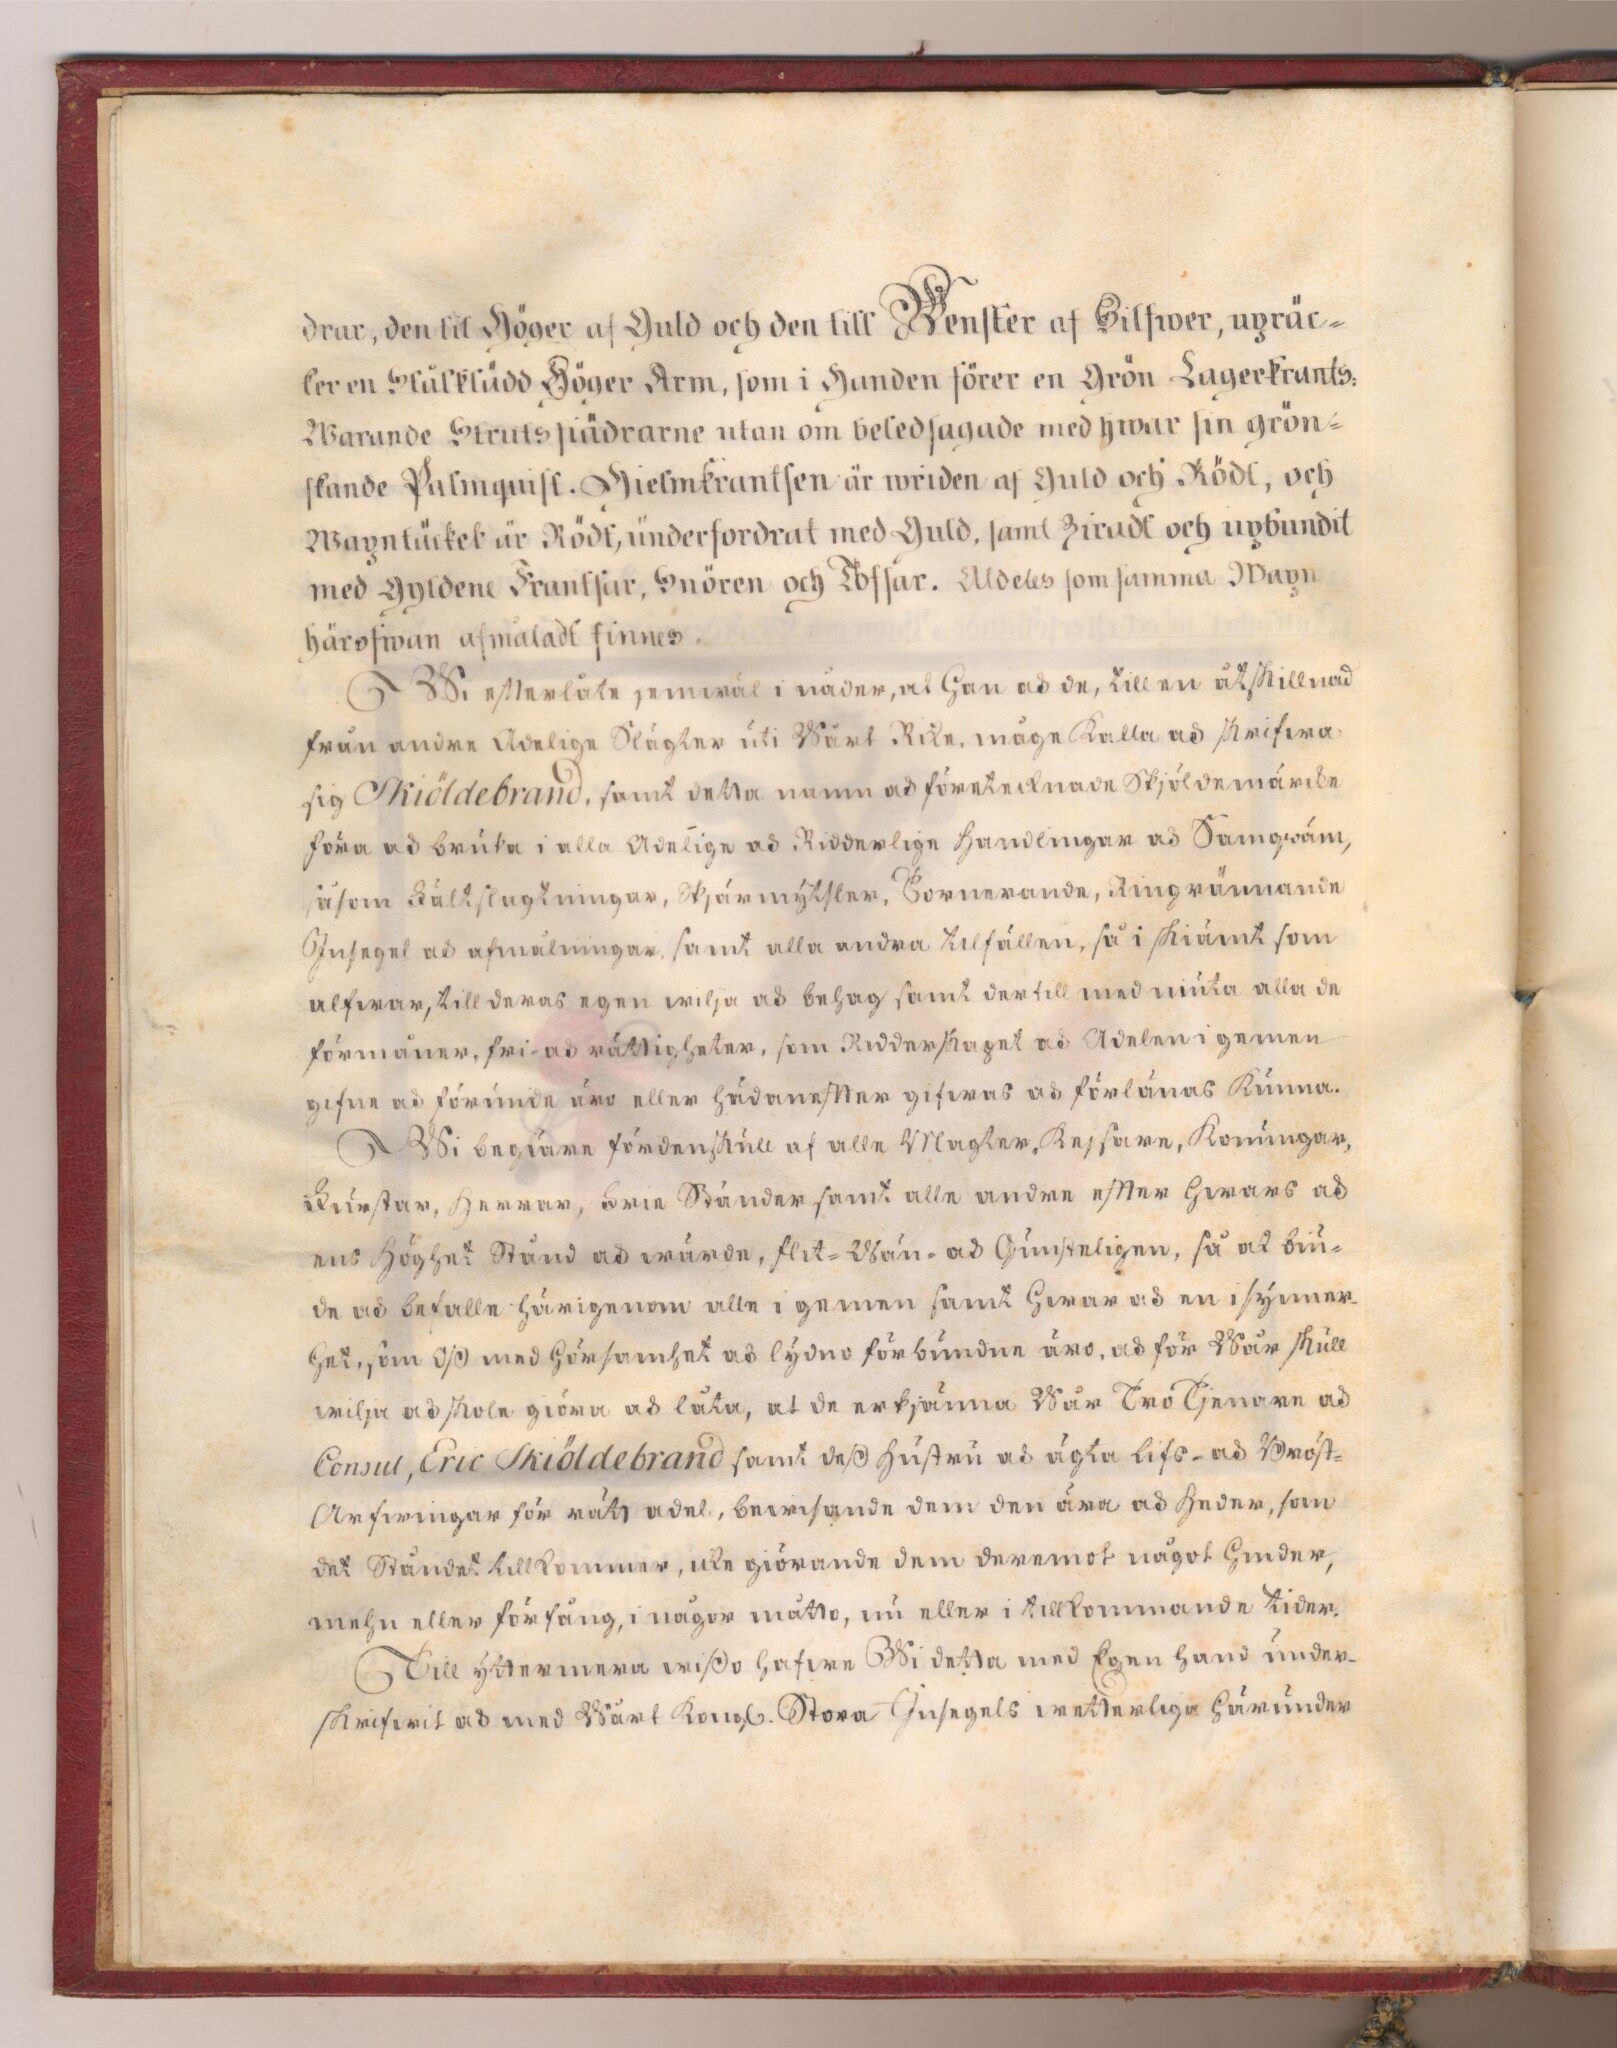 drar, den til Höger af Guld och den till Wenster af Silfwer, upräc-
ker en Stålklädd Höger Arm, som i Handen förer en Grön Lagerkrants:
Warande Strutsfiädrarne utan om beledsagade med hwar sin grön-
skande Palmquist. Hielmkrantsen är wriden af Guld och Rödt, och
Wapntäcket är Rödt, underfordrat med Guld, samt Ziradt och upbundit
med Gyldene Frantsar, Snören och Tofsar. Aldeles som samma Wapn
härofwan afmåladt finnes.
Wi efterlåte jemwäl i nåder, at Han och de, till en åtskillnad
från andre Adelige Slägter uti Wårt Rike, måge kalla och skrifwa
sig Skiöldebrand, samt detta namn och företecknade Skjöldemärcke
föra och bruka i alla Adelige och Ridderlige Handlingar och Samqwäm,
såsom Fältslagtningar, Skjärmytsler, Tornerande, Ringrännande
Insegel och afmålningar, samt alla andra tilfällen, så i skiämt som
alfwar, till deras egen wilja och behag samt dertill med niuta alla de
förmåner, fri- och rättigheter, som Ridderskapet och Adelen i gemen
gifne och förunde äro eller hädanefter gifwas och förlänas kunna.
Wi begiäre fördenskull af alle Magter, Kejsare, Konungar,
Furstar, Herrar, Frie Ständer samt alle andre efter hwars och
ens Höghet Stånd och wärde, flit- Wän- och Gunsteligen, så at biu-
de och befalle härigenom alle i gemen samt hwar och en i synner-
het, som Oß med hörsamhet och lydno förbundne äro, och för Wår skull
wilja och skole giöra och låta, at de erkjänna Wår Tro Tjenare och
Consul, Eric Skiöldebrand samt deß Hustru och ägta Lifs- och Bröst-
Arfwingar för rätt adel, bewisande dem den ära och Heder, som
det Ståndet tillkommer, icke giörande dem deremot något hinder,
mehn eller förfång, i någor måtto, nu eller i tillkommande tider.
Till yttermera wißo hafwe Wi detta med Egen hand under-
skrifwit och med Wårt Kongl. Stora Insegels wetterliga härunder